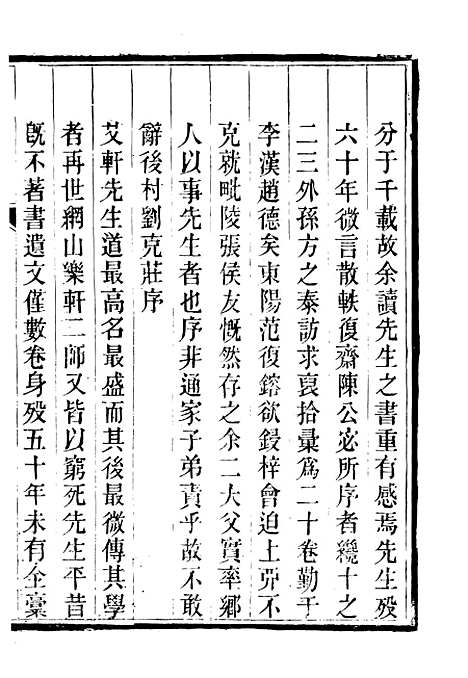 分于千載故余讀先生之書重有感焉先生歿
六十年微言散軼復齋陳公宓所序者纔十之
二三外孫方之泰訪求裒拾彙爲二十卷勤于
李漢趙德矣東陽范復鎔欲鋟梓會迫上㢧不
克就毗陵張侯友慨然存之余二大父實率鄉
人以事先生者也序非通家子弟責乎故不敢
辭後村劉克莊序
艾軒先生道最高名最盛而其後最微傳其學
者再世網山樂軒二師又皆以窮死先生平昔
旣不著書遺文僅數卷身歿五十年未有全稾